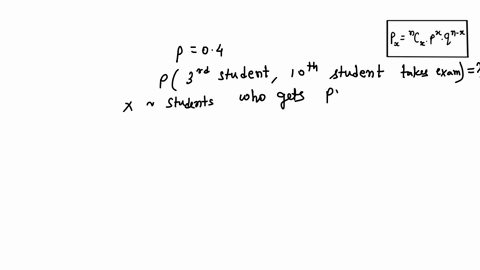 p = 0.4
Pₓ = ⁿCₓ. pˣ. qⁿ⁻ˣ
P( 3ʳᵈ student, 10ᵗʰ student takes exam) = ?
X ~ students who gets